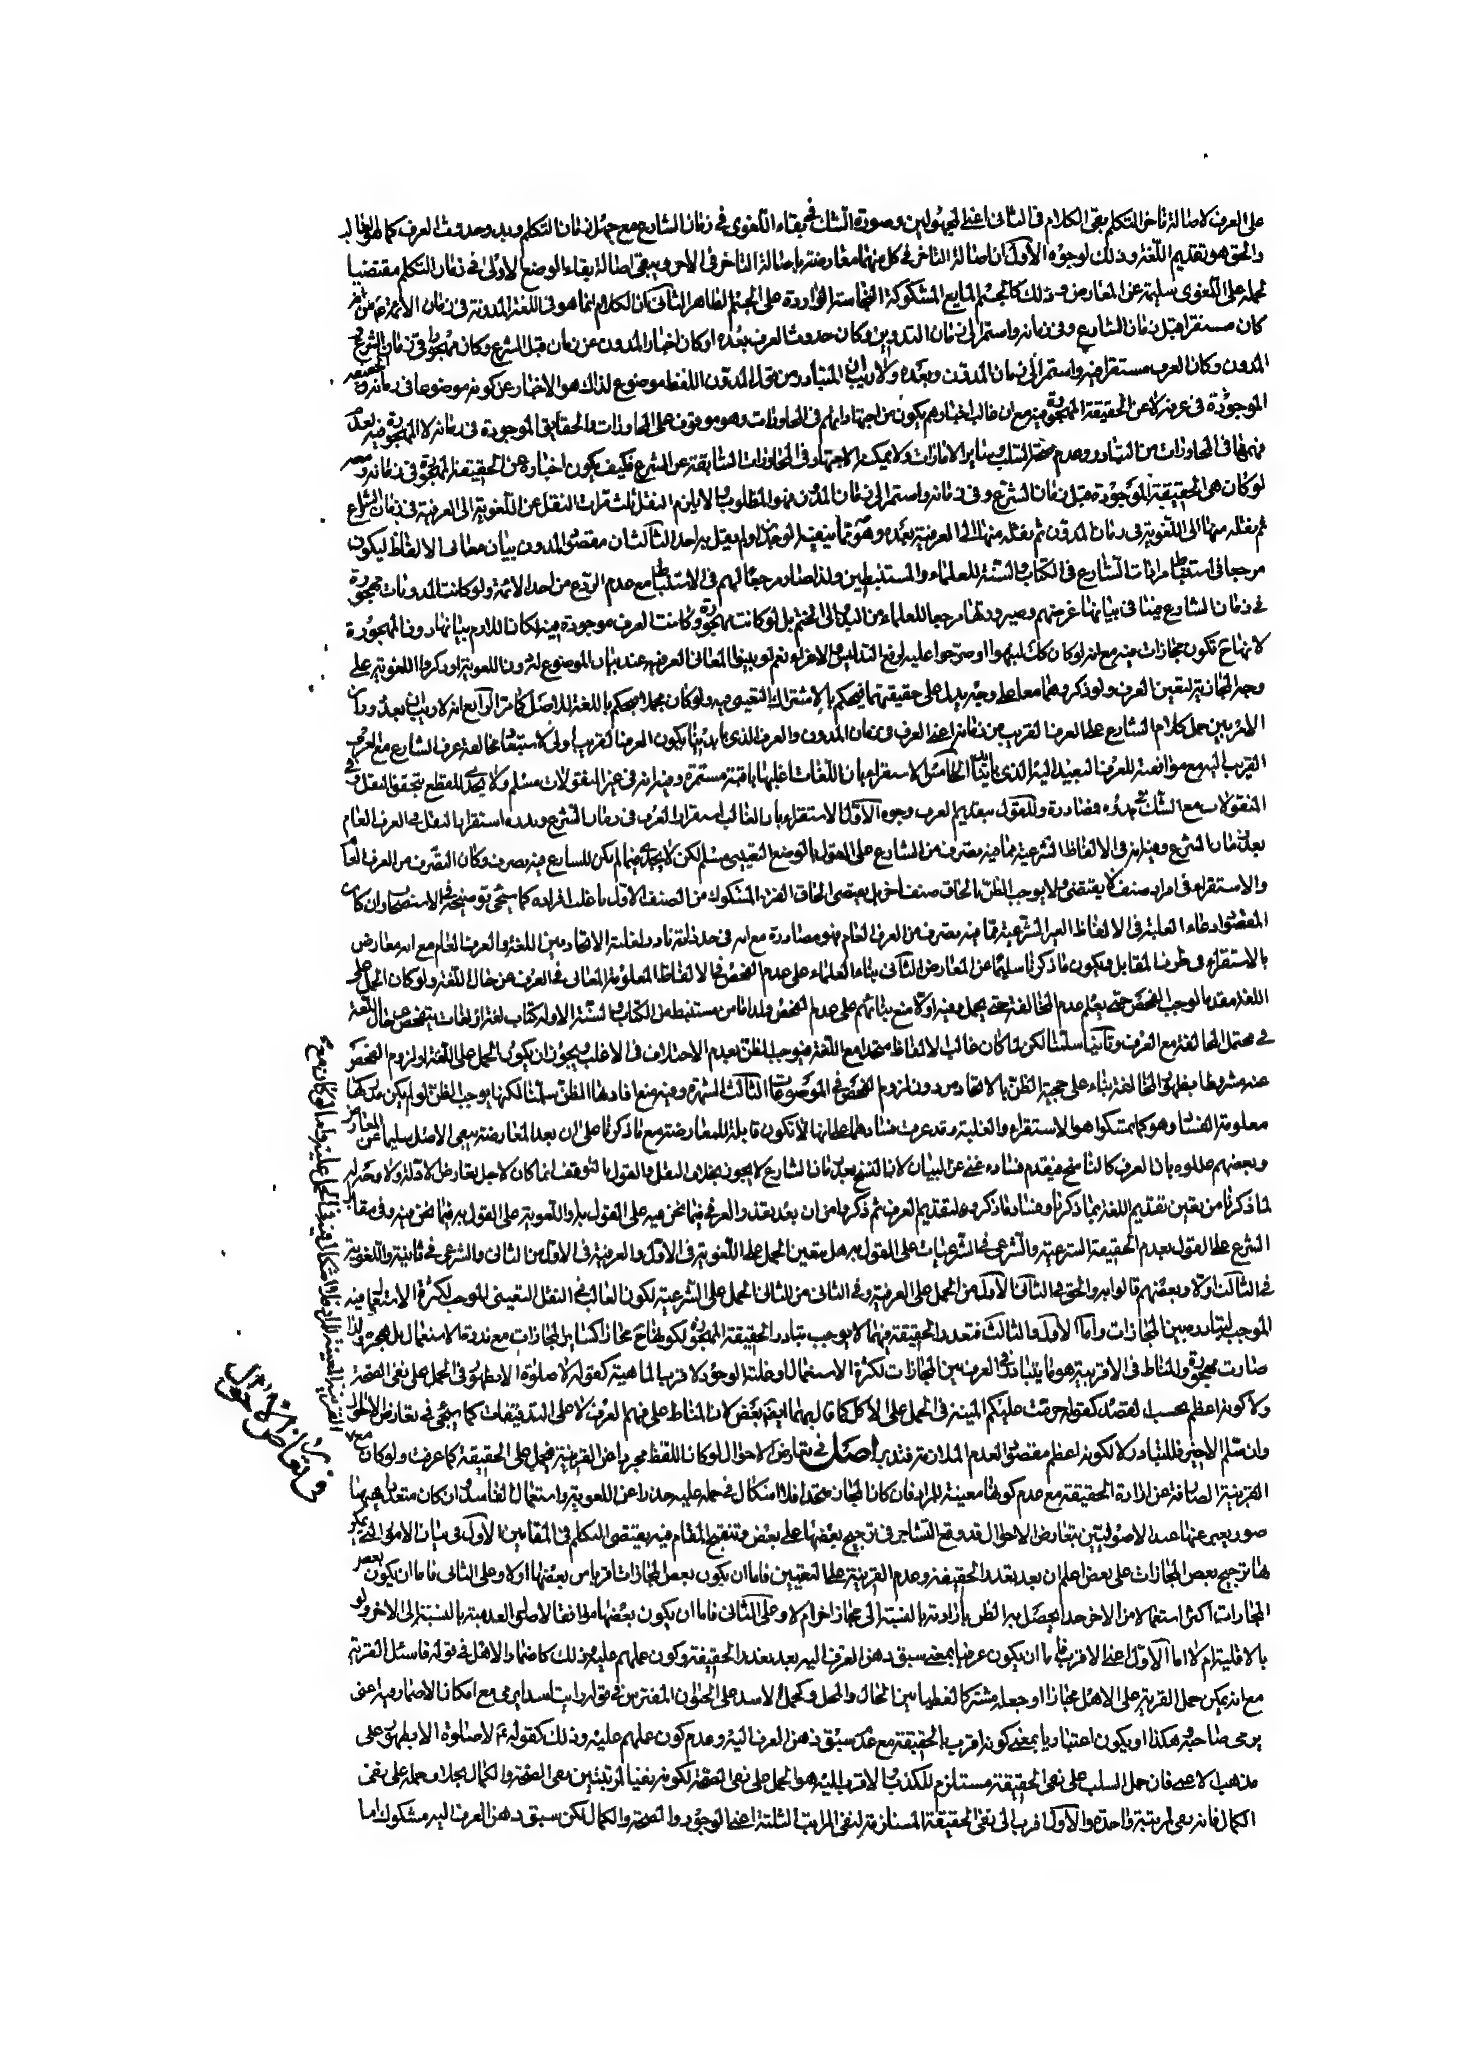 على العرف لاصالة تأخر التكلم بقى الكلام فى الثانى اعنى المجهولين وصورة الشك فى بقاء اللغوى فى زمان الشارع مع جهل زمان التكلم وبدو حدوث العرف كما هو الغالب
والحق هو تقديم اللغة وذلك لوجوه الأول ان اصالة التأخر فى كل منهما معارضة باصالة التأخر فى الاخر ويبقى اصالة بقاء الوضع الاول الى زمان التكلم مقتضيا
لحمله على اللغوى سليمة عن المعارض وذلك كالجسم المايع المشكوكة النجاسة الواردة على الجسم الطاهر الثانى ان الكلام انما هو فى اللغة المدونة فى زمان الائمة
كان مستقرا قبل زمان الشارع وفى زمانه واستمر الى زمان التدوين وكان حدوث العرف بعده او كان اخبار المدون عن زمان قبل الشرع وكان مهجورا فى زمان الشرع
المدون وكان العرف مستقرا فيه واستمر الى زمان المدون وبعده ولا ريب ان المتبادر من قول المدون اللفظ موضوع لذاك هو الاخبار عن كونه موضوعا فى زمانه
الموجودة فى عرفه لا عن الحقيقة المهجورة فيه مع ان غالب اخبارهم يكون من اجتهاداتهم فى المحاورات وهو موقوف على المحاورات والحقايق الموجودة فى زمانه لا المهجورة فيه لعدم
فهمها فى المحاورات من التبادر وعدم صحة السلب وساير الامارات ولا يمكن الاجتهاد فى المحاورات السابقة عن الشرع فكيف يكون اخباره عن الحقيقة المهجورة فى زمانه
لو كان هى الحقيقة الموجودة قبل زمان الشرع وفى زمانه واستمر الى زمان المدون فهو المطلوب والا يلزم النقل ثلث مرات النقل عن اللغوية الى العرفية فى زمان الشارع
ثم نقله منها الى اللغوية فى زمان المدون ثم نقله منها الى العرفية بعده وهو مما ينفيه الوجدان ولم يقل به احد الثالث ان مقصود المدون بيان معانى الالفاظ ليكون
مرجعا فى استنباط مرادات الشارع فى الكتاب والسنة للعلماء والمستنبطين ولذا صار مرجعا لهم فى الاستنباط مع عدم الردع من احد الائمة ولو كانت المدونات مهجورة
فى زمان الشارع فينا فى بيانها غرضهم وصيرورتها مرجعا للعلماء من البدو الى الختم بل لو كانت مهجورة وكانت العرف موجودة فيه لكان اللازم بيانها دون المهجورة
لانها ح تكون مجازات فيه مع انه لو كان كك لنبهوا او صرحوا عليه لرفع التدليس والاغراء نعم لو بينوا المعانى العرفية عند بيان الموضوع له دون اللغوية او ذكروا اللغوية على
وجه المجازية لتعين العرف ولو ذكروهما معا على وجه يدل على حقيقتهما فيحكم بالاشتراك التعيينى فيه ولو كان مجملا فيحكم باللغة للاصل كما مر الرابع انه لا ريب ان
الامر بين حمل كلام الشارع على العرف القريب من زمانه اعنى العرف فى زمان المدون والعرف الذى بايدينا يكون العرف القريب اولى لاستبعاد مخالفة عرف الشارع مع العرف
القريب اليه مع موافقته للعرف البعيد اليه الذى بايدينا الخامس الاستقراء بان اللغات اغلبها باقية مستمرة وفيه انه فى غير المنقولات مسلم ولا يجدى للقطع بتحقق النقل وفى
المنقولات مع الشك فى بدوه مصادرة وللقول بتقديم العرف وجوه الاول الاستقراء بان الغالب استقرار العرف فى زمان الشرع وبدوه استقرار النقل فى العرف العام
بعد زمان الشرع وفيه انه فى الالفاظ الشرعية مما فيه تصرف من الشارع على القول بالوضع التعيينى مسلم لكن لا يجدى فيما لم يكن للشارع فيه تصرف وكان التصرف من العرف العام
والاستقراء فى افراد صنف لا يقتضى ولا يوجب الظن بالحاق صنف اخر بل يقتضى الحاق الفرد المشكوك من الصنف الاول باغلب افراده كما سيجئ توضيحه فى الاستصحاب وان كان
المقصود ادعاء الغلبة فى الالفاظ الغير الشرعية مما فيه تصرف من العرف العام فهو مصادرة مع انه فى حد ذاته نادر لغلبة الاتحاد بين اللغة والعرف العام مع انه معارض
بالاستقراء فى طرف المقابل فيكون ما ذكرنا سليما عن المعارض الثانى بناء العلماء على عدم الفحص فى الالفاظ المعلومة المعانى فى العرف عن حال اللغة ولو كان الحمل على
اللغة مقدما لوجب الفحص حتى يعلم عدم المخالفة حتى يحمل وفيه اولا منع بنائهم على عدم الفحص ولذا ما من مستنبط من الكتاب والسنة الا وله كتاب لغة او لغات يتفحص عن حال اللغة
فى محتمل المخالفة مع العرف وثانيا سلمنا لكن لما كان غالب الالفاظ متحدا مع اللغة فيوجب الظن بعدم الاختلاف فى الاغلب فيجوز ان يكون الحمل على اللغة او لزوم الفحص
عنه مشروطا بظهور المخالفة بناء على حجية الظن بالاتحاد من دون لزوم الفحص فى الموضوعات الثالث الشهرة وفيه منع افادتها الظن سلمنا لكنها يوجب الظن لو لم يكن مدركها
معلومة الفساد وهو كما تمسكوا هو الاستقراء والغلبة وقد عرفت فسادهما على انها لا تكون قابلة للمعارضة مع ما ذكرنا على ان بعد المعارضة يبقى الاصل سليما عن المعارض
وبعضهم عللوه بان العرف كالناسخ فيقدم فساده غنى عن البيان لان النسخ بعد زمان الشارع لا يجوز بخلاف النقل والقول بالتوقف انما كان لاجل تعارض الادلة ولا وجه له
لما ذكرنا من تعين تقديم اللغة بما ذكرنا وفساد ما ذكروه لتقديم العرف ثم ذكروا من ان بعد تعدد العرف فيما نحن فيه على القول به او اللغوية على القول به فيما نحن فيه وفى مقابل
الشرع على القول بعدم الحقيقة الشرعية والشرعى فى الشرعيات على القول به هل يتعين الحمل على اللغوية فى الاول والعرفية فى الاول من الثانى والشرعى فى ثانية واللغوية
فى الثالث اولا وبعضهم قالوا به والحق فى الثانى الاول من الحمل على العرفية وفى الثانى من الثانى الحمل على الشرعية لكون الغالب فى النقل التعينى الموجب لكثرة الاستعمال فيه
الموجب لتبادره من بين المجازات واما الاول والثالث فتعدد الحقيقة فيهما لا يوجب تبادر الحقيقة المهجورة لكونها ح مجازا كساير المجازات مع ندرة الاستعمال بل هجره ولذا
صارت مهجورة والمناط فى الاقربية هو ما يتبادر فى العرف من بين المجازات لكثرة الاستعمال وغلبة الوجود لا قرب الماهية كقوله لا صلوة الا بطهور فى الحمل على نفى الصحة
ولا كونه اعظم بحسب القصد كقوله حرمت عليكم الميتة فى الحمل على الاكل كما قال بهما ايضا بعض لان المناط على فهم العرف لا على التدقيقات كما سيجئ فى تعارض الاحوال
وان سلم الاخير فللتبادر لا لكونه اعظم مقصود لعدم الملازمة فتدبر اصل فى تعارض الاحوال لو كان اللفظ مجردا عن القرينة فيحمل على الحقيقة كما عرفت ولو كان مع
القرينة الصارفة عن ارادة الحقيقة مع عدم كونها معينة للمراد فان كان المجاز متحدا فلا اشكال فى حمله عليه حذرا عن اللغوية واستعمال الفاسد وان كان متعددا فهنا
صور يعبر عنها عند الاصوليين بتعارض الاحوال قد وقع التشاجر فى ترجيح بعضها على بعض وتنقيح المقام فيه يقتضى التكلم فى المقامين الاول فى بيان الامور التى يمكن
بها ترجيح بعض المجازات على بعض اعلم ان بعد تعدد الحقيقة وعدم القرينة على التعيين فاما ان يكون بعض المجازات اقرب من بعضها اولا وعلى الثانى فاما ان يكون بعض
المجازات اكثر استعمالا من الاخر حدا يحصل به الظن بارادته بالنسبة الى مجاز اخر ام لا وعلى الثانى فاما ان يكون بعضها موافقا لاصل العدمية بالنسبة الى الاخر ولو
بالاقلية ام لا اما الاول اعنى الاقرب فاما ان يكون عرفيا بمعنى سبق ذهن العرف اليه بعد تعدد الحقيقة وكون عملهم عليه وذلك كاضمار الاهل فى قوله فاسئل القرية
مع انه يمكن حمل القرية على الاهل مجازا او جعله مشتركا لفظيا بين الحال والمحل وكحمل الاسد على الحيوان المفترس فى قوله رايت اسدا يرمى مع امكان الاضمار فيه اعنى
يرمى صاحبه هكذا او يكون اعتباريا بمعنى كونه اقرب بالحقيقة مع عدم سبق ذهن العرف اليه وعدم كون عملهم عليه وذلك كقوله لا صلوة الا بطهور على
مذهب الاعمى فان حمل السلب على نفى الحقيقة مستلزم للكذب والاقرب اليه هو الحمل على نفى الصحة لكونه نفيا لمرتبتين نفى الصحة والكمال بخلاف حمله على نفى
الكمال فانه نفى لمرتبة واحدة والاول اقرب الى نفى الحقيقة المستلزمة لنفى المراتب الثلثة اعنى الوجود والصحة والكمال لكن سبق ذهن العرف اليه مشكوك اما
فى تعارض الاحوال